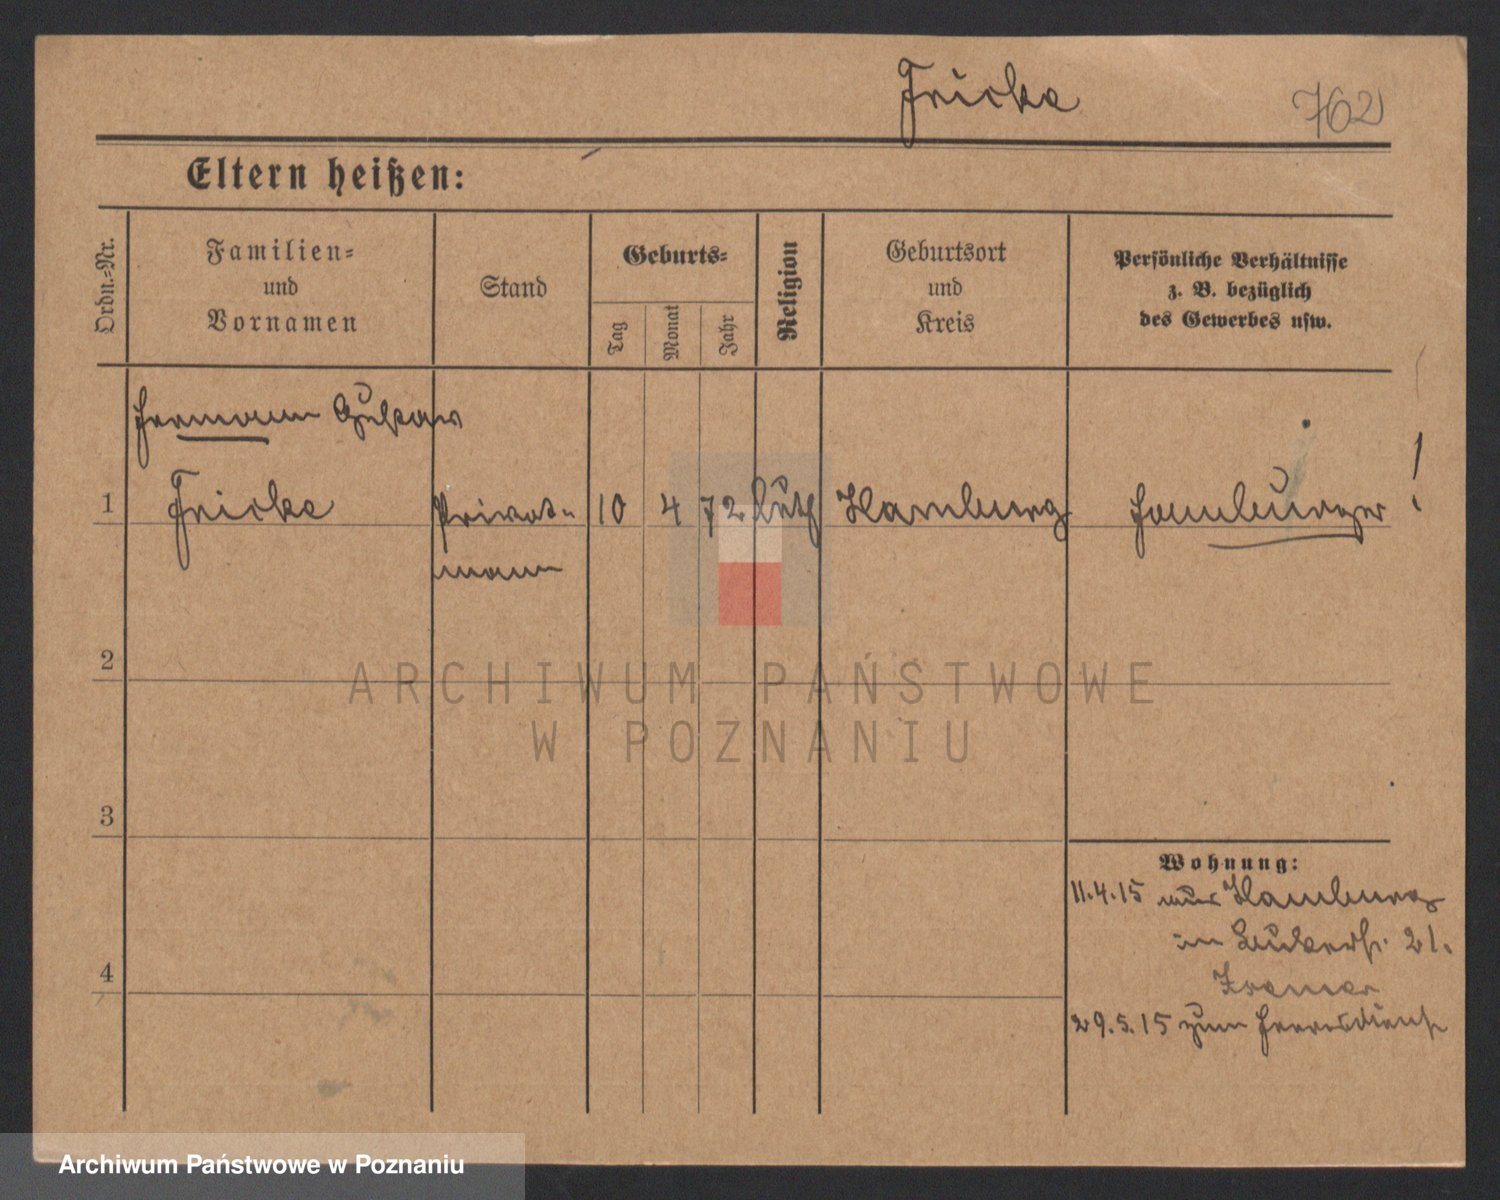 Fricke 762
Eltern heißen:
Ordn.=Nr.
Familien=
und
Vornamen
Stand
Geburts=
Tag
Monat
Jahr
Religion
Geburtsort
und
Kreis
Persönliche Verhältnisse
z. B. bezüglich
des Gewerbes usw.
Hermann Gustav
1 Fricke Privat- 10 4 72 luth Hamburg Hamburger !
mann
2
ARCHIWUM PAŃSTWOWE
W POZNANIU
3
Wohnung:
11.4.15 aus Hamburg
in 21.
4
29.5.15 zum Heeresdienst
Archiwum Państwowe w Poznaniu